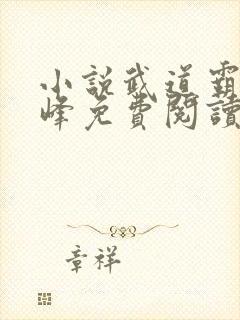 小說武道霸
峰免費閱讀
章祥